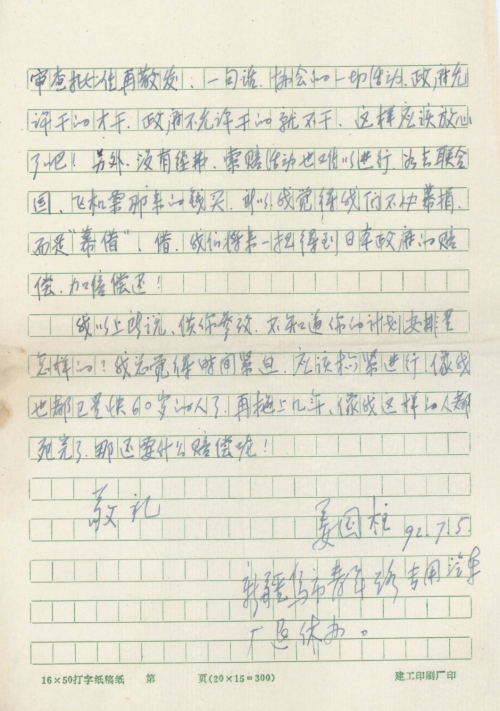 审查批准再散发、一句话、协会的一切活动、政府允
许干的才干、政府不允许干的就不干、这样应该放心
了吧！另外、没有经费、索赔活动也难以进行、如去联合
国、飞机票那来的钱买、所以我觉得我们不如募捐、
而是“募借”、借、我们将来一旦得到日本政府的赔
偿、加倍偿还！
我以上所说、供你参改、不知道你的计划安排是
怎样的？我总觉得时间紧迫、应该抓紧进行、像我
也都已是快60岁的人了、再拖上几年、像我这样的人都
死完了、那还要什么赔偿呢！
敬礼
姜国柱 92.7.5
新疆乌市青年路专用汽车
厂退休办。
16×50打字纸稿纸 第 页(20×15=300) 建工印刷厂印